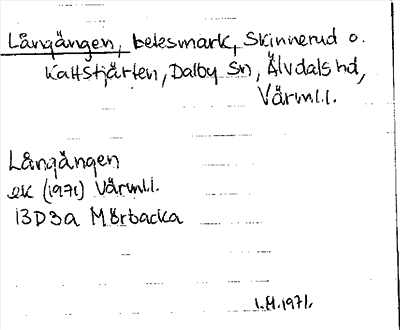 Långängen, betesmark, Skinnerud o.
Kattstjärten, Dalby sn, Älvdals hd,
Värml.l.
Långängen
ek (1971) Värml.l.
13D3a Mörbacka
I.M.1971.